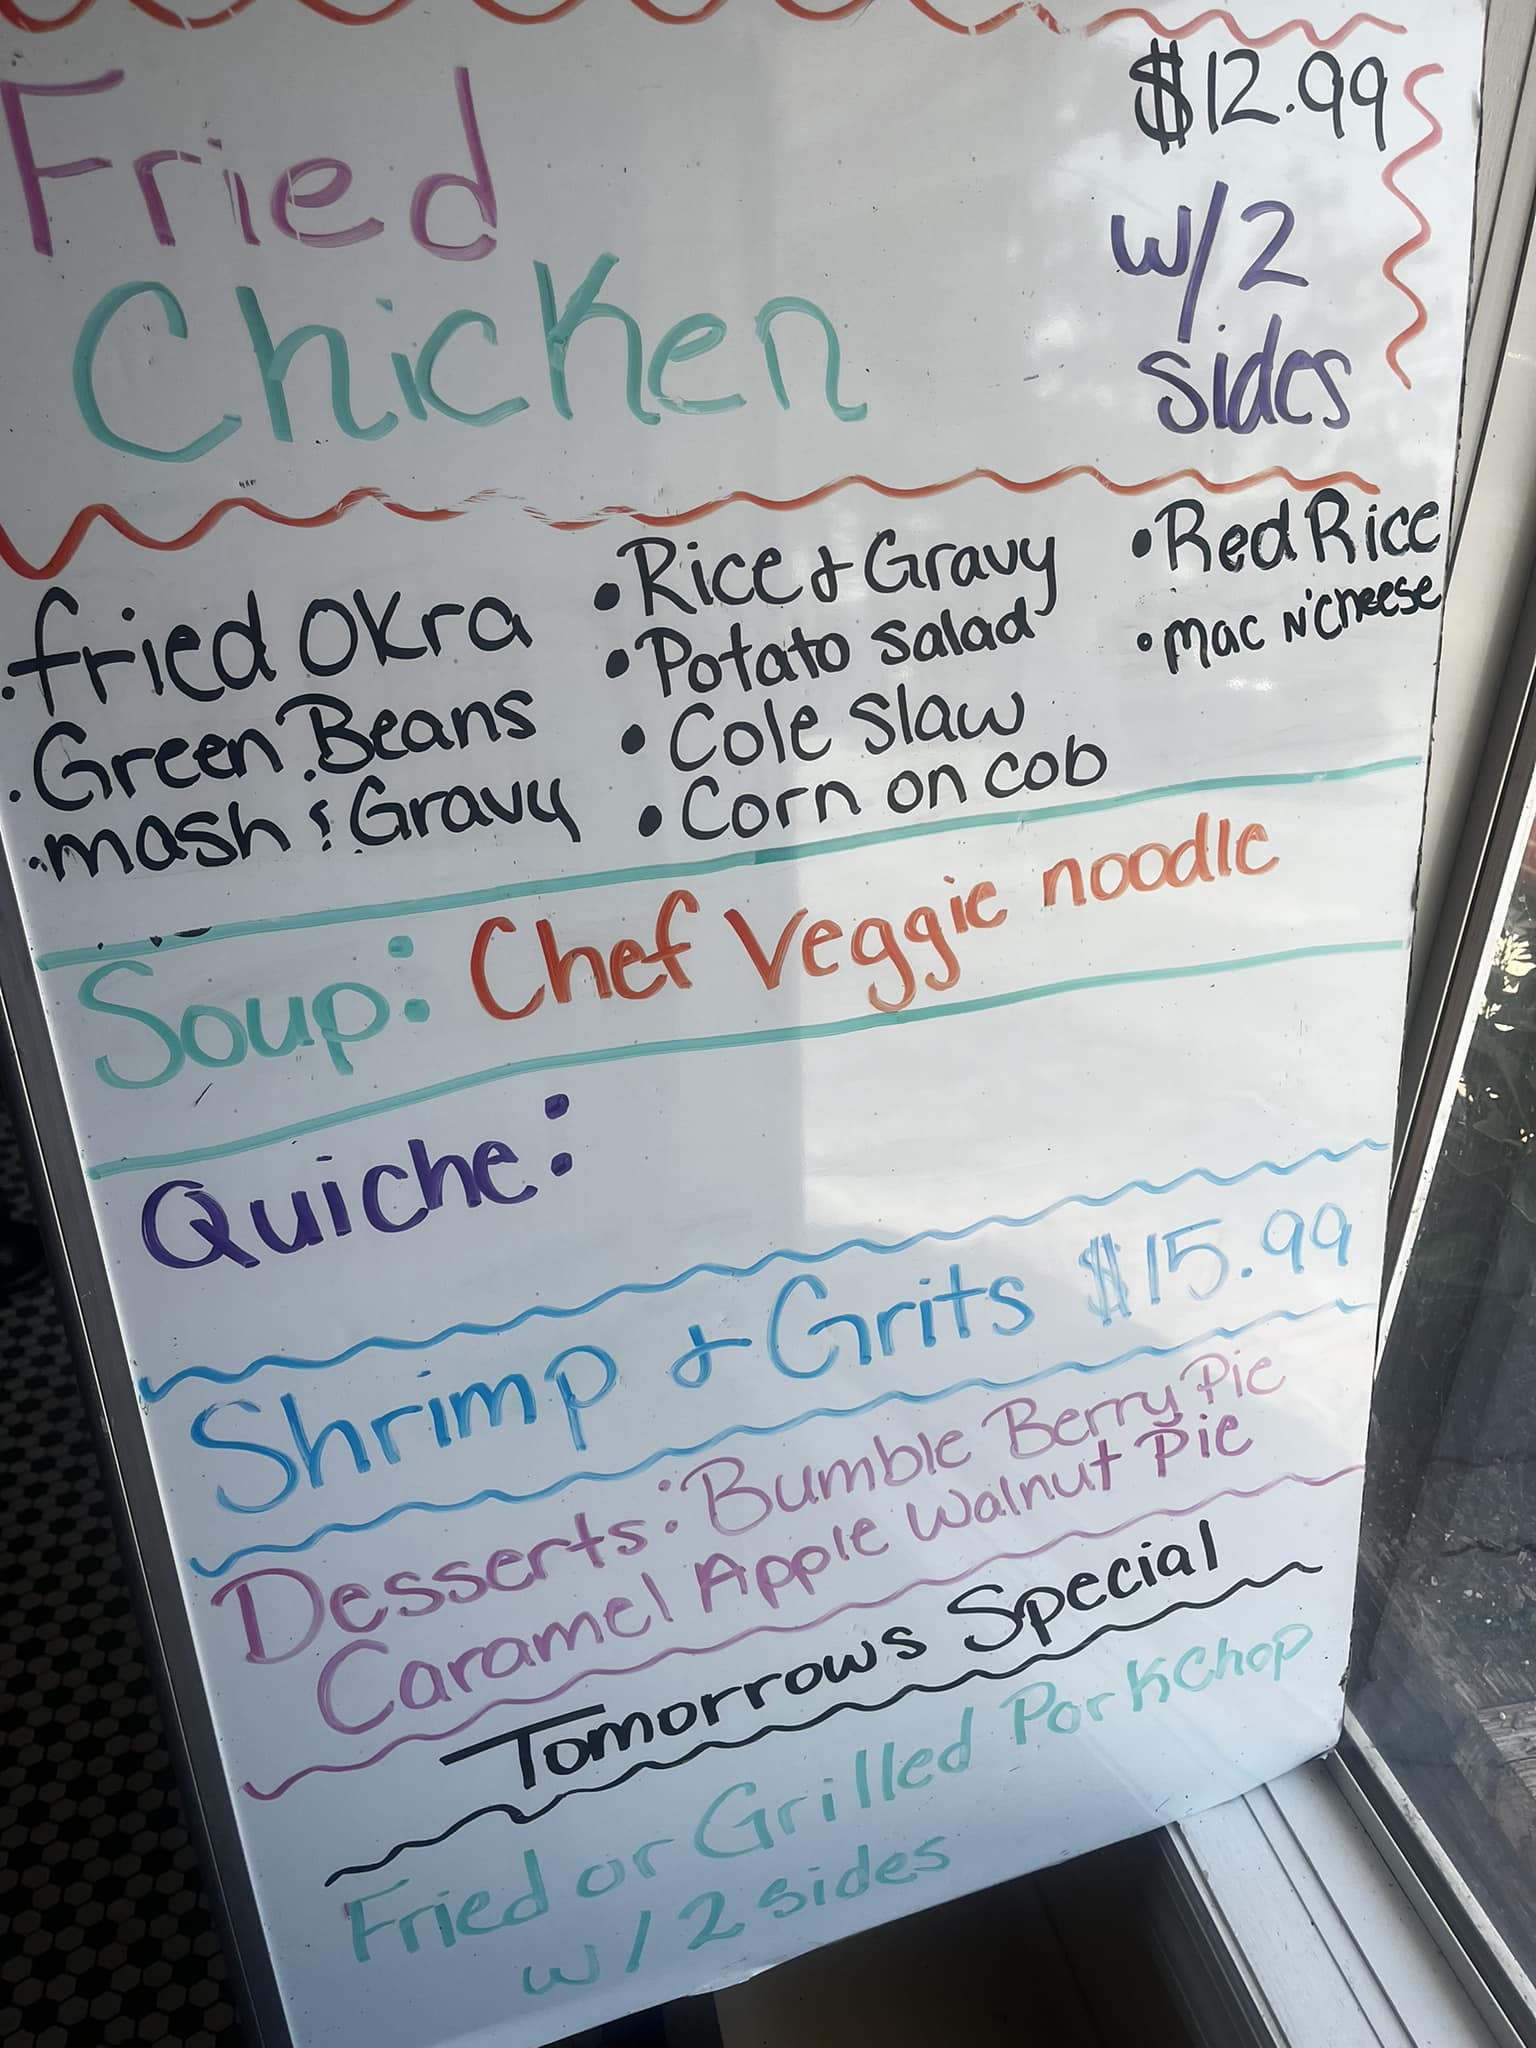 Fried
Chicken
$12.99
w/2
sides
• fried Okra
• Green Beans
• mash & Gravy
• Rice & Gravy
• Potato Salad
• Cole Slaw
• Corn on cob
• Red Rice
• Mac N'Cheese
Soup: Chef Veggie noodle
Quiche:
Shrimp & Grits $15.99
Desserts: Bumble Berry Pie
Caramel Apple Walnut Pie
Tomorrows Special
Fried or Grilled Pork Chop
w/2 sides